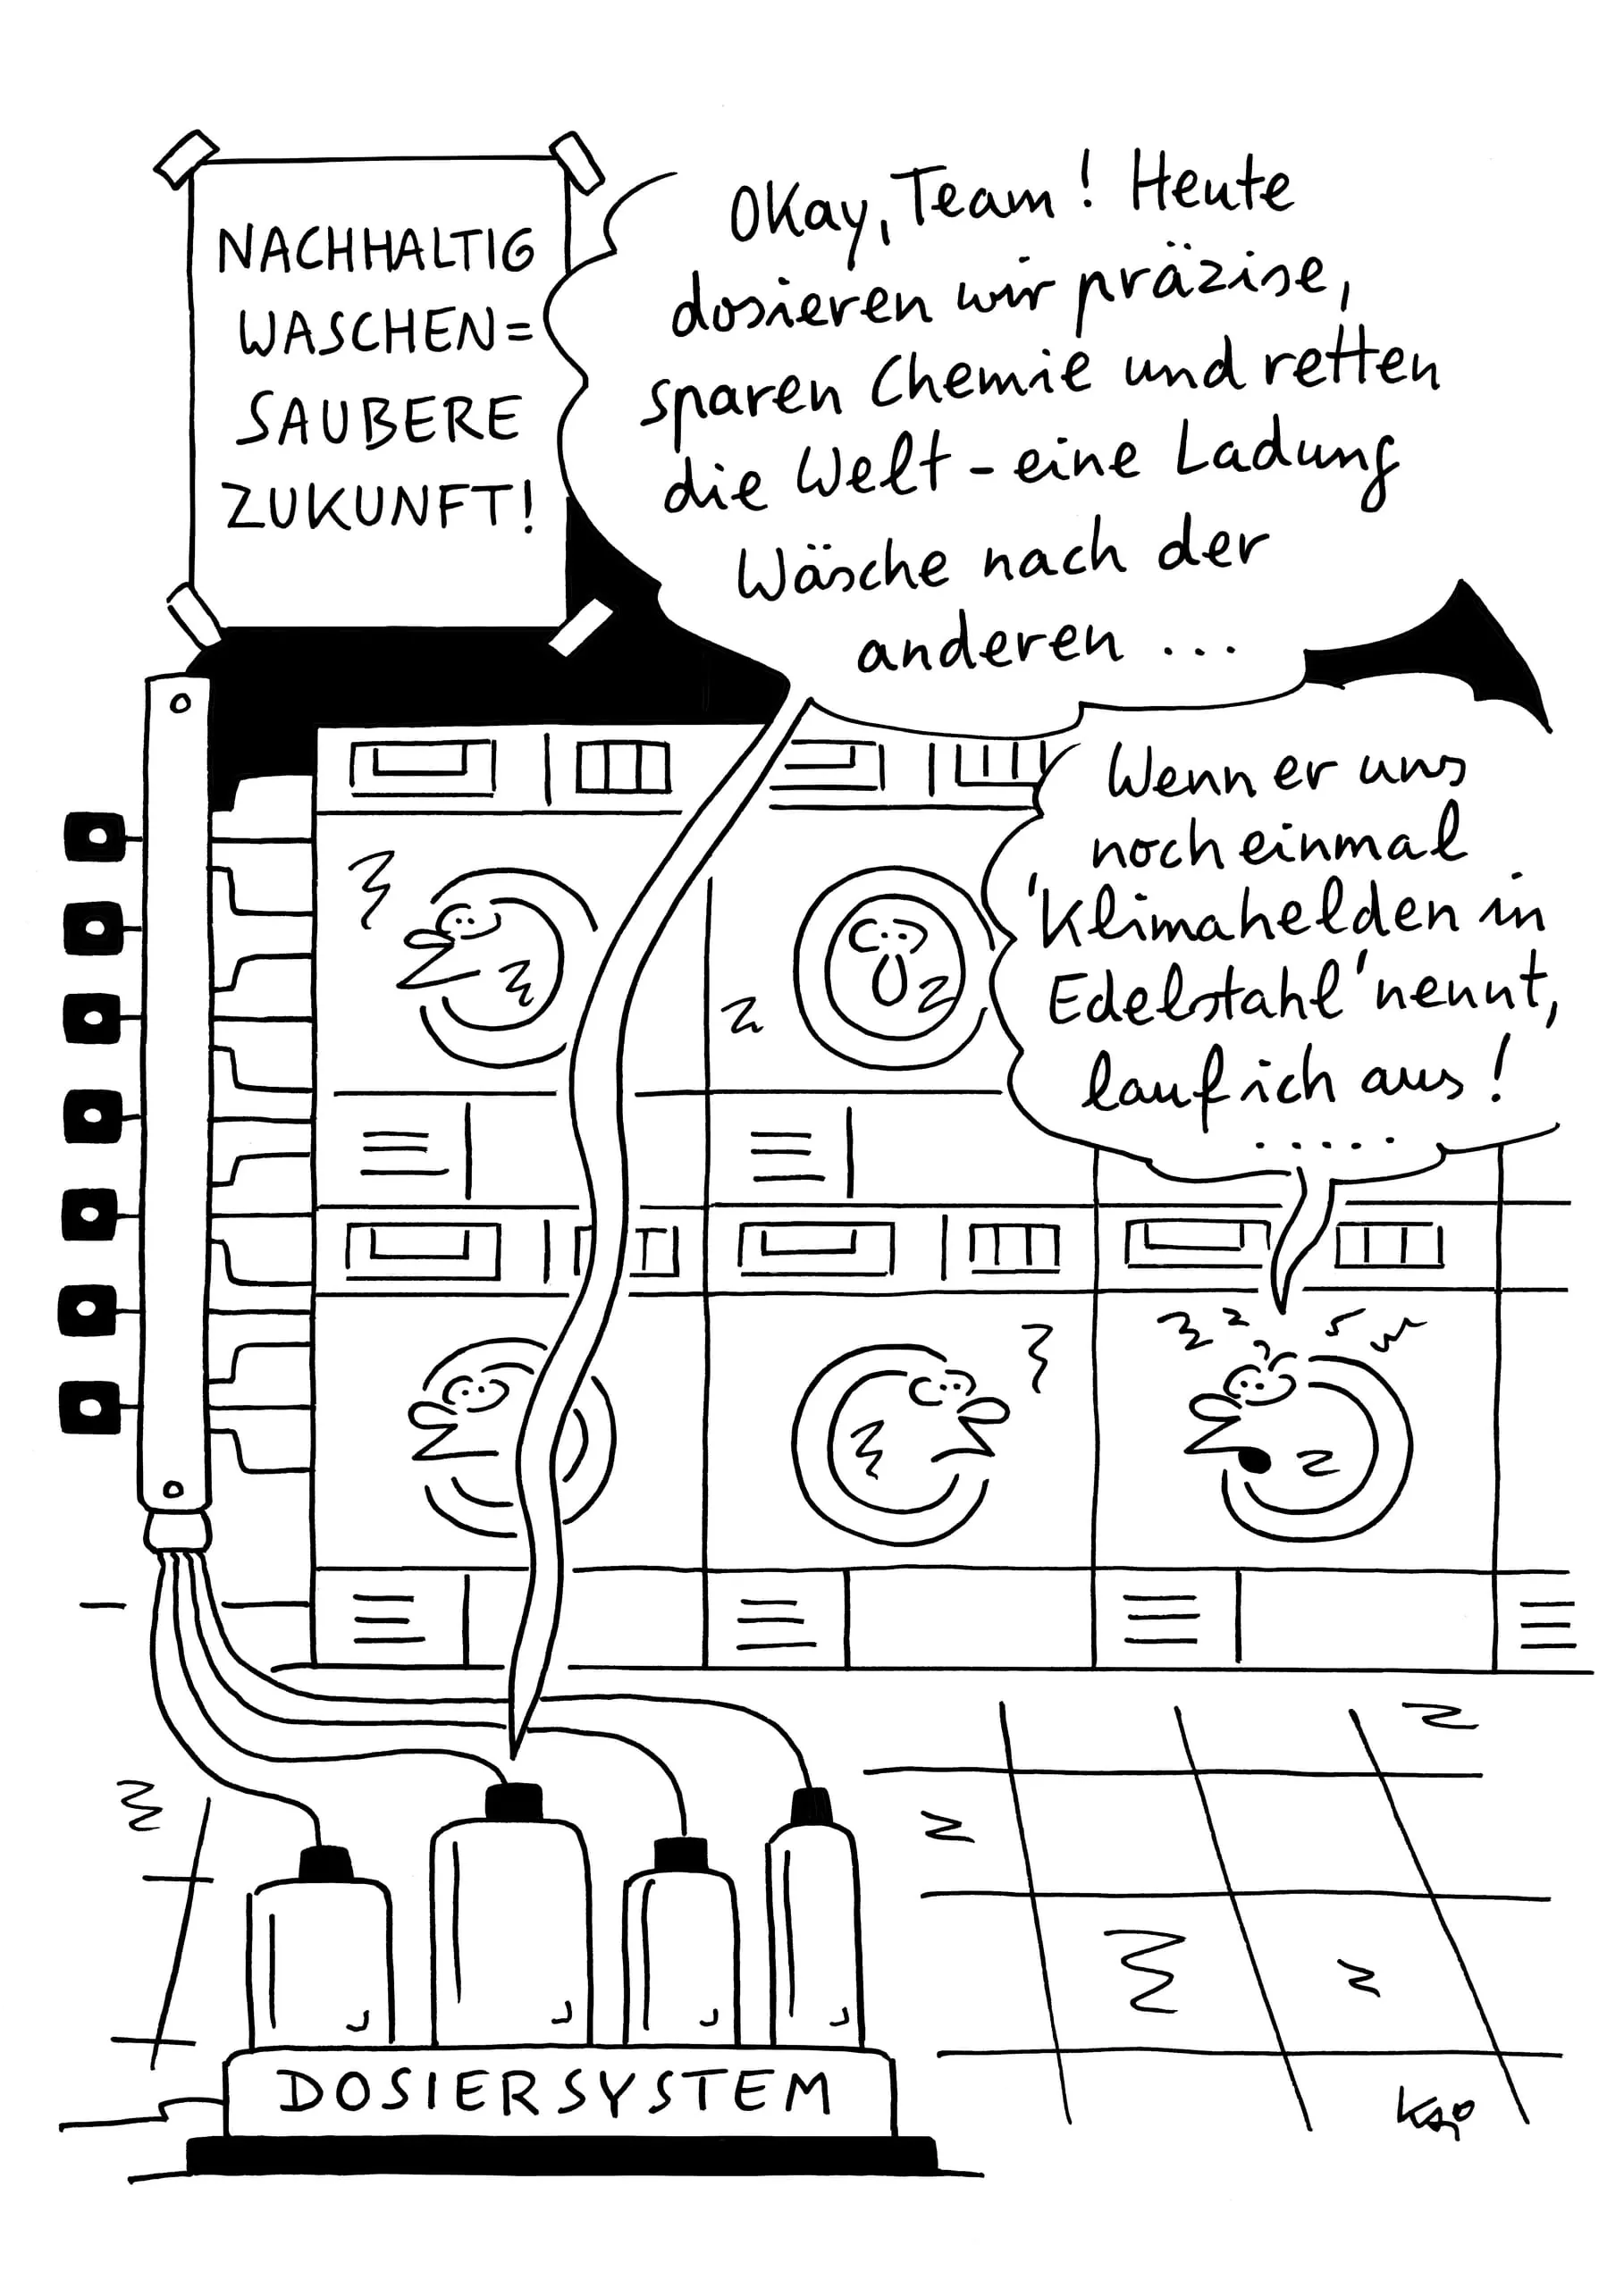 NACHHALTIG
WASCHEN=
SAUBERE
ZUKUNFT!
Okay, Team! Heute
dosieren wir präzise,
sparen Chemie und retten
die Welt - eine Ladung
Wäsche nach der
anderen ...
Wenn er uns
noch einmal
'Klimahelden in
Edelstahl' nennt,
lauf ich aus!
.....
DOSIERSYSTEM